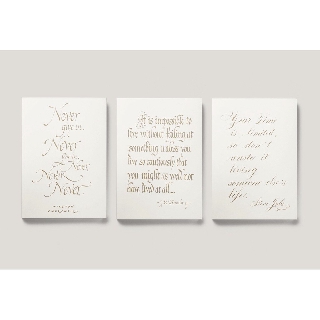 Never
give in.
Never
Never
Never
Never
It is impossible to
live without failing at
something unless you
live so cautiously that
you might as well not
have lived at all...
Your time
is limited,
so don't
waste it
living
someone else's
life.